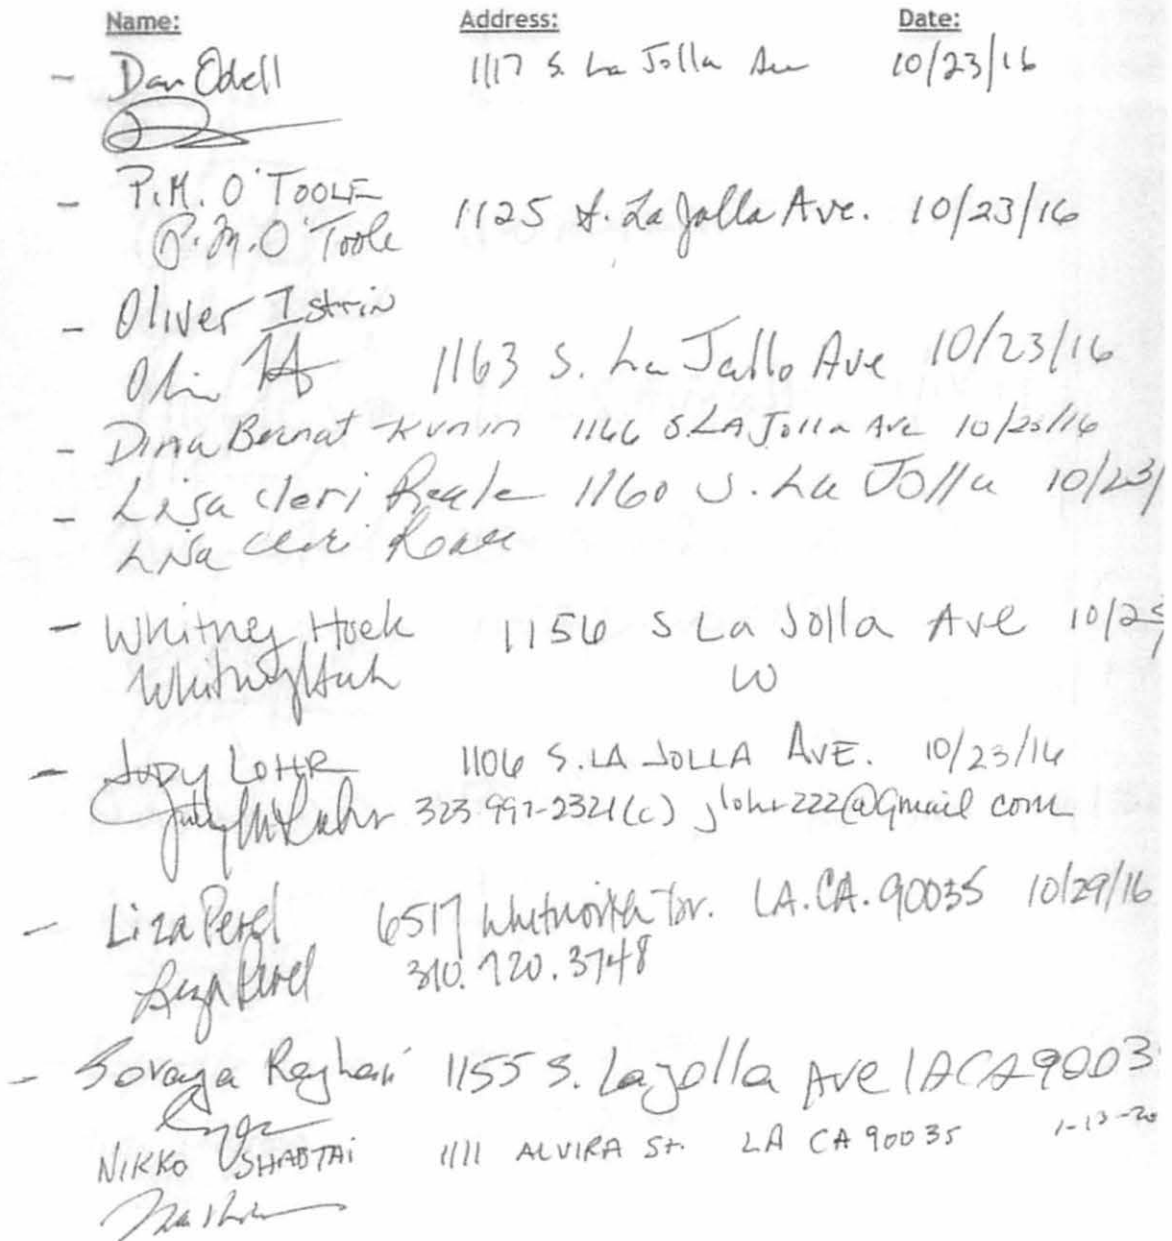 Name: Address: Date:
- Dan Odell 1117 S. La Jolla Ave 10/23/16
- P.M. O'TOOLE
P.M. O'Toole 1125 S. La Jolla Ave. 10/23/16
- Oliver Istrin
1163 S. La Jolla Ave 10/23/16
- Dina Bernat-Kunin 1166 S. LA Jolla Ave 10/23/16
- Lisa Cleri Reale 1160 S. La Jolla 10/23/
Lisa Cleri Reale
- Whitney Hoek 1156 S La Jolla Ave 10/2
Whitney Hoek W
- JUDY LOHR 1106 S. LA JOLLA AVE. 10/23/16
Judy M Lohr 323.997-2321 (c) jlohr222@gmail com
- Liza Perel 6517 Whitworth Dr. LA. CA. 90035 10/29/16
Liza Perel 310.720.3748
- Soraya Rayhani 1155 S. La Jolla Ave LA CA 9003
NIKKO SHABTAI 1111 ALVIRA St. LA CA 90035 1-13-20